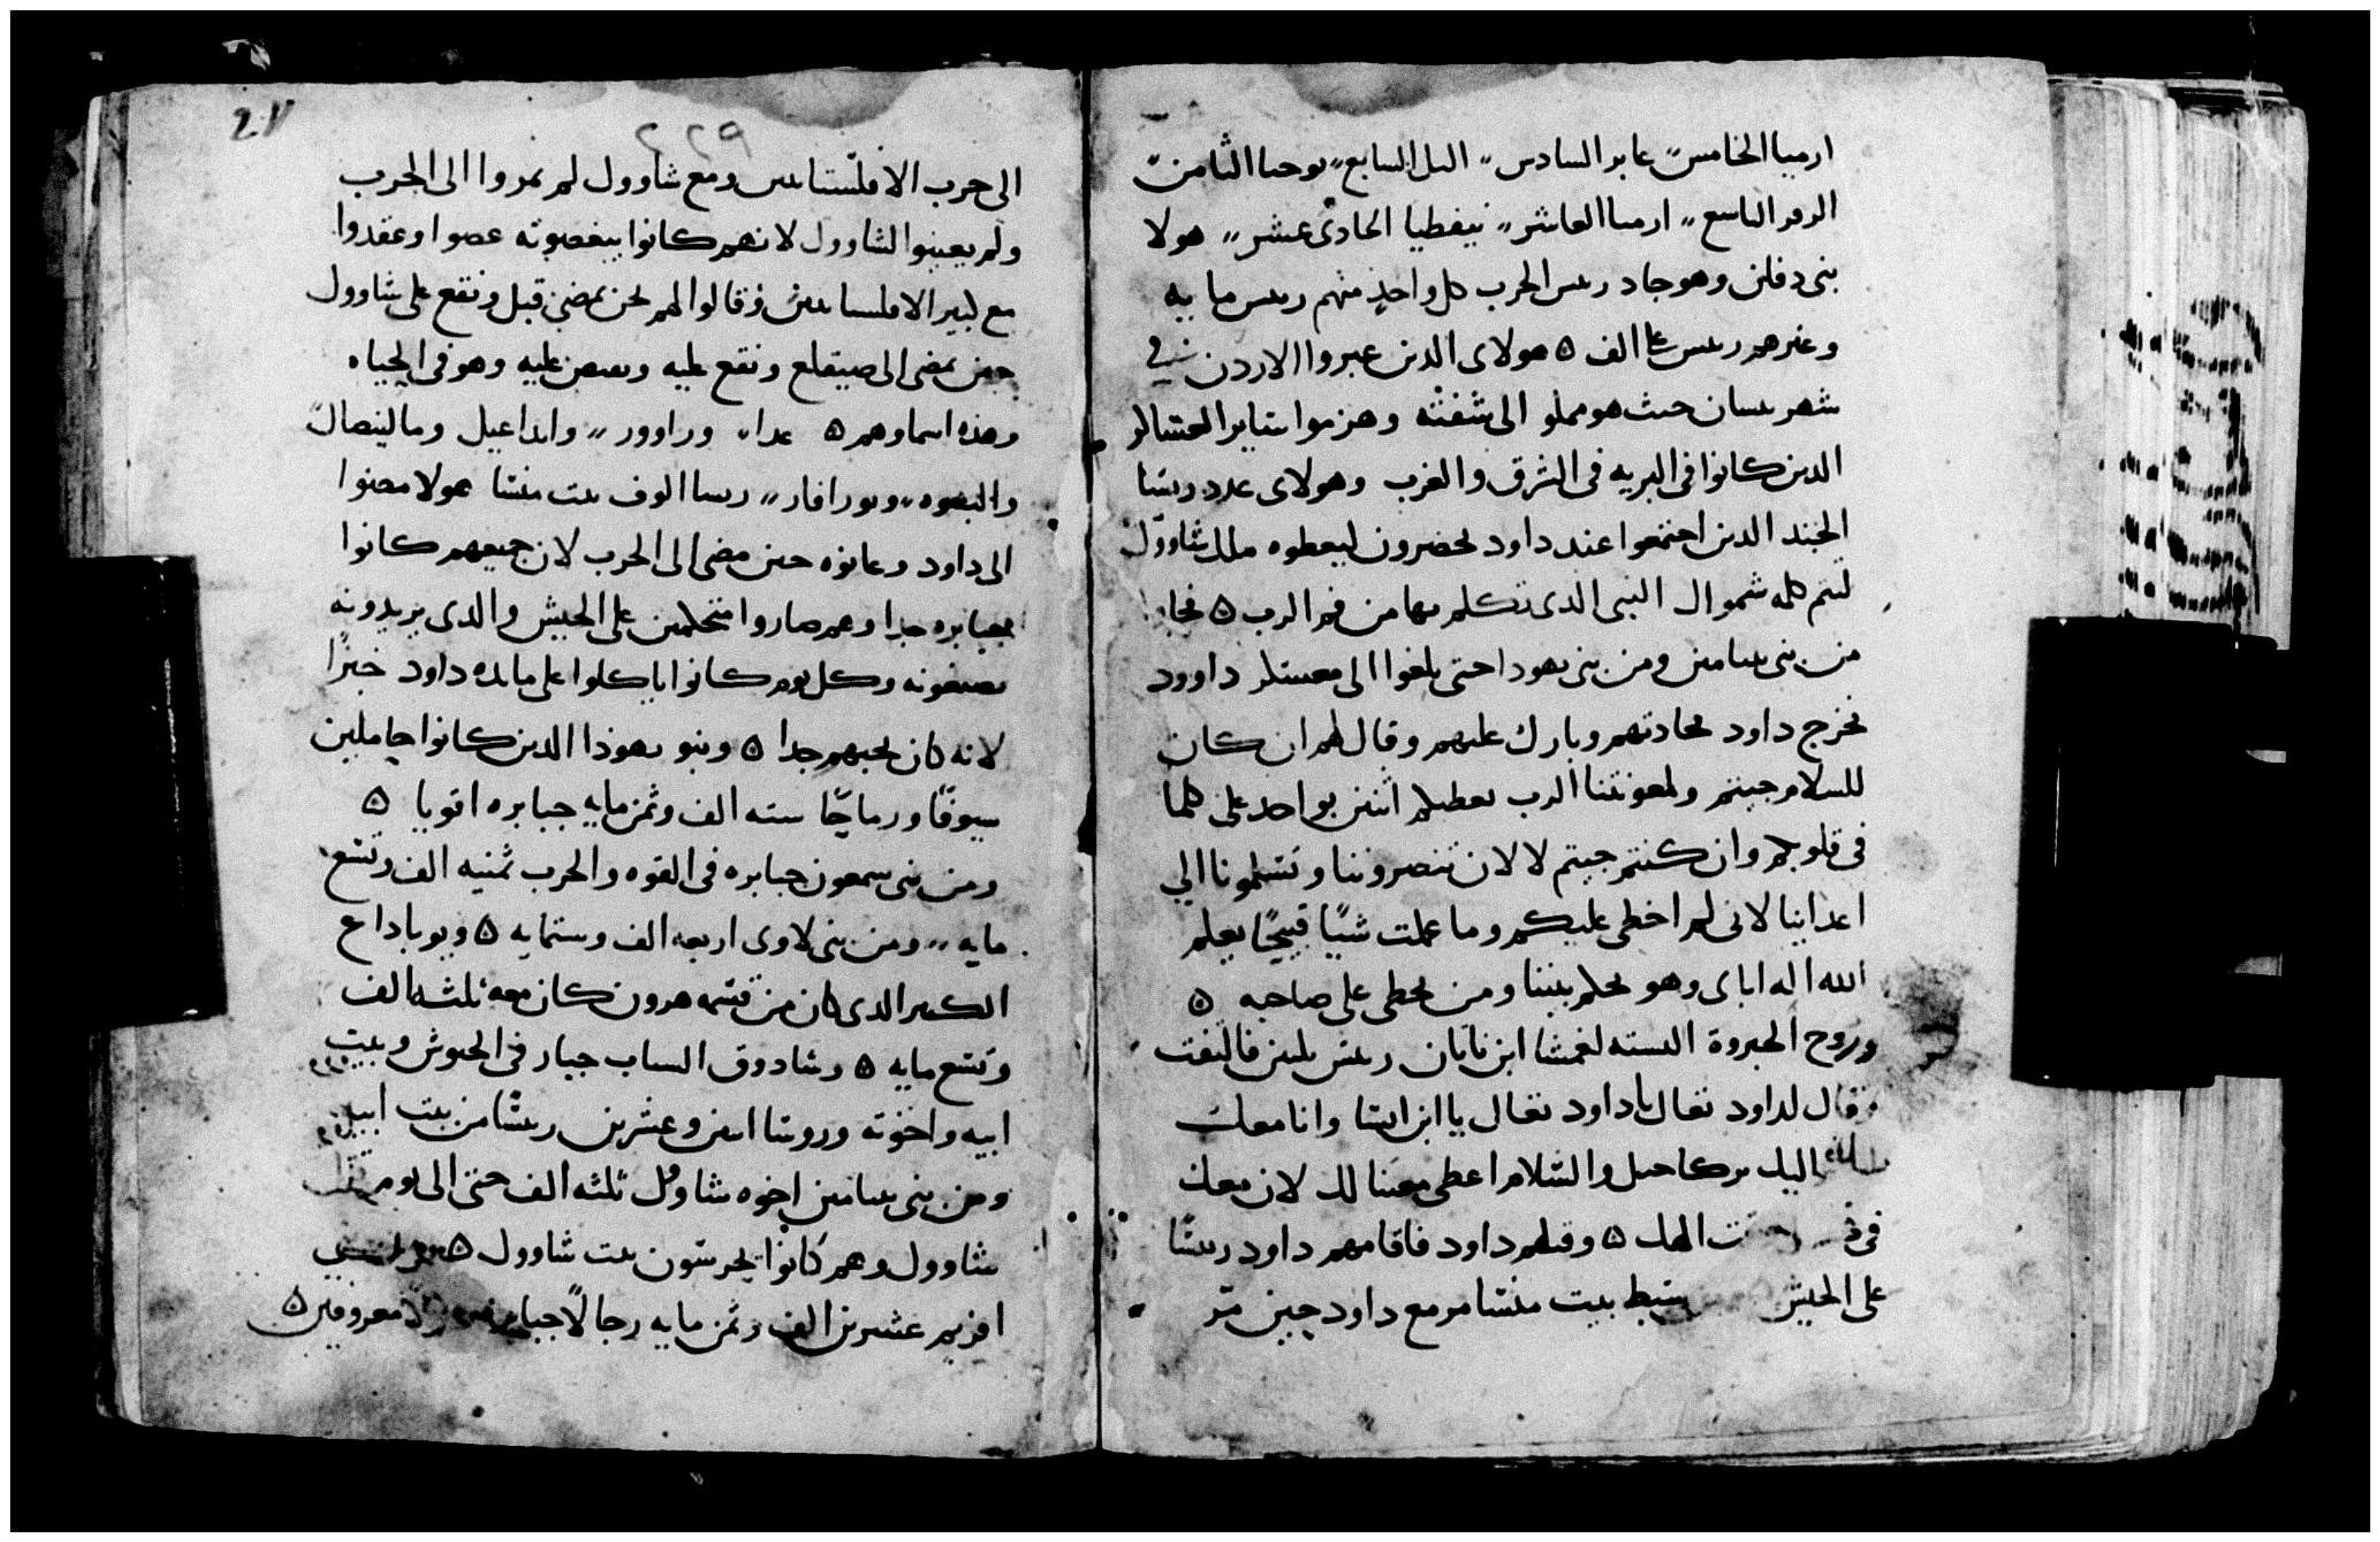 ارميا الخامس عابر السادس الىل السابع يوحنا الثامن
الرفر التاسع ارميا العاشر نيفطيا الحادى عشر هولا
بنى دفلن وهو جاد ريس الحرب كل واحد منهم ريس مايه
وغيرهم ريس على الف ه هولاى الدين عبروا الاردن في
شهر نيسان حيث هو مملو الى شفته وهزموا ساير العساكر
الدين كانوا فى البريه فى الشرق والغرب وهولاى عدد روسا
الجند الدين اجتمعوا عند داود بحضرون ليعطوه ملك شاوول
لتتم كلمه شموال النبى الدى تكلم بها من فم الرب ه
من بنى بنيامين ومن بنى يهودا حتى بلغوا الى معسكر داوود
فخرج داود بحادتهم وبارك عليهم وقال لهم ان كان
للسلام جيتم ولمعونتنا الرب يعطيكم اثنين بواحد على كلما
فى قلوبكم وان كنتم جيتم لا لان تنصروننا وتسلمونا الي
اعداينا لانى لم اخطى عليكم وما عملت شيًا قبيحًا يعلم
الله اله اباى وهو يحكم بيننا ومن يخطى على صاحبه ه
وروح الجبروة البسته لغمشا ابن ريس فالتفت
وقال لداود تعال ياداود تعال يا ابن ايشا وانا معك
اليك والسلام اعطى معينا لك لان معك
ه وقبلهم داود فاقامهم داود ريسًا
على الجيش سبط بيت منشا مر مع داود حين مر
٢٢٩
الى حرب الافلستانيين ومع شاوول لم يمروا الى الحرب
ولم يعينوا لشاوول لانهم كانوا يبغضونه عصوا وعقدوا
مع كبير الافلستانيين وقالوا لهم نحن نمضى قبل ونقع على شاوول
حين نمضى الى صيقلع ونقع عليه ونقبض عليه وهو فى الحياه
وهذه اسماوهم ه عدا وراوور وانداعيل وماليصال
والبهوه وىورافار ريسا الوف بيت منشا هولا مضوا
الى داود وعانوه حين مضى الى الحرب لان جميعهم كانوا
جبابره جدا وهم صاروا متحكمين على الجيش والدى يريدونه
يصنعونه وكل يوم كانوا ياكلوا على مايده داود خبزًا
لانه كان يحبهم جدا ه وبنو يهوذا الدين كانوا حاملين
سيوفًا ورماحًا سته الف وثمن مايه جبابره اقويا ه
ومن بنى سمعون جبابره فى القوه والحرب ثمنيه الف وتسع
مايه ومن بنى لاوى اربعه الف وستمايه ه ويوباداع
الكبير الدى كان من قسمه هرون كان معه ثلثه الف
وتسع مايه ه وشادوق الساب جبار فى الجيوش وبيت
ابيه واخوته وروسا اثنين وعشرين ريسًا من بيت ابيه
ومن بنى بنيامين اخوه شاول ثلثه الف حتى الى يوم
شاوول وهم كانوا يحرسون بيت شاوول ه
افريم عشرين الف وثمن مايه رجالًا جبابره معروفين ه